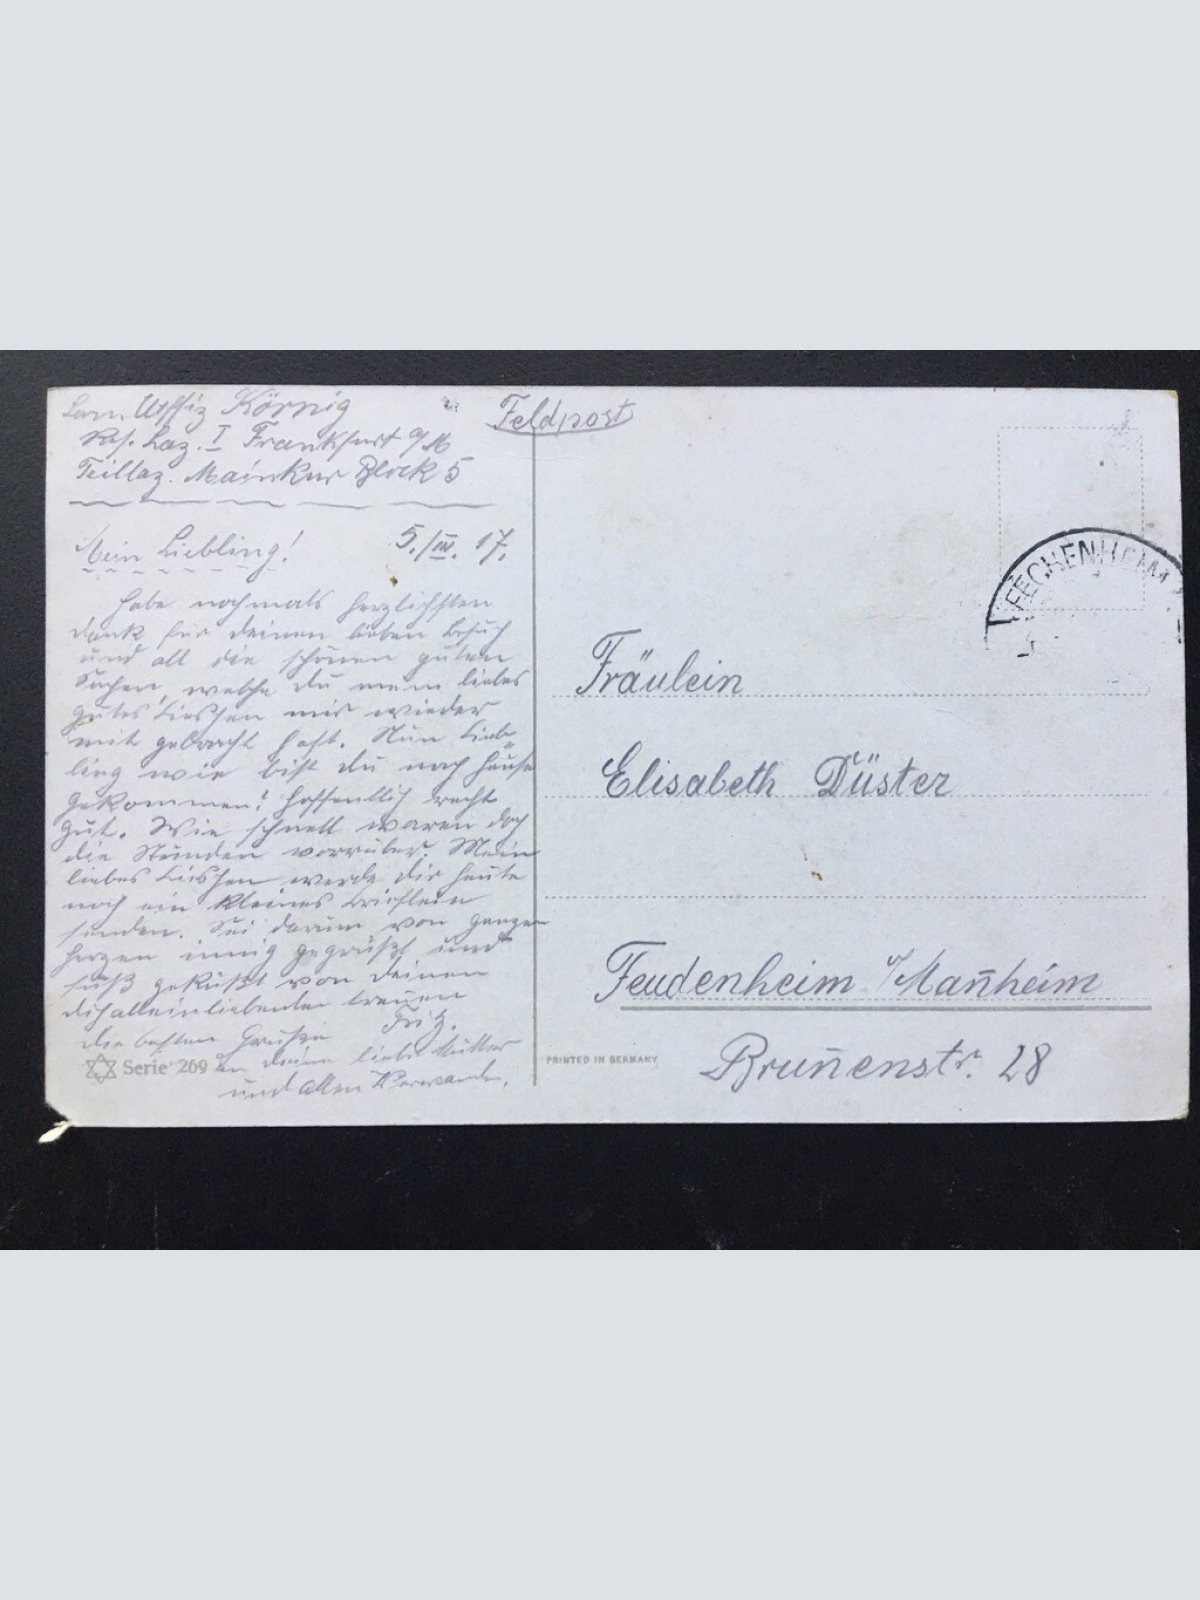 Utffiz Körnig
Res. Laz. I Frankfurt a/M
Teillaz. Mainkur Block 5
Feldpost
Mein Liebling! 5./III. 17.
Habe nochmals herzlichsten
Dank für deinen lieben Besuch
und all die schönen guten
Sachen, welche du mein liebes
gutes Lieschen mir wieder
mit gebracht hast. Nun Lieb-
ling wie bist du nach Hause
gekommen? Hoffentlich recht
gut. Wie schnell waren doch
die Stunden vorrüber. Mein
liebes Lieschen werde dir heute
noch ein kleines Brieflein
senden. Sei darum von ganzen
Herzen innig gegrüßt und
süß geküßt von deinen
dichalleinliebenden treuen
Fritz.
Die besten Grüße
an deine liebe Mutter
und allen Verwanden.
Serie 269
PRINTED IN GERMANY
FECHENHEIM
Fräulein
Elisabeth Düster
Feudenheim a/Man̄heim
Brun̄enstr. 28